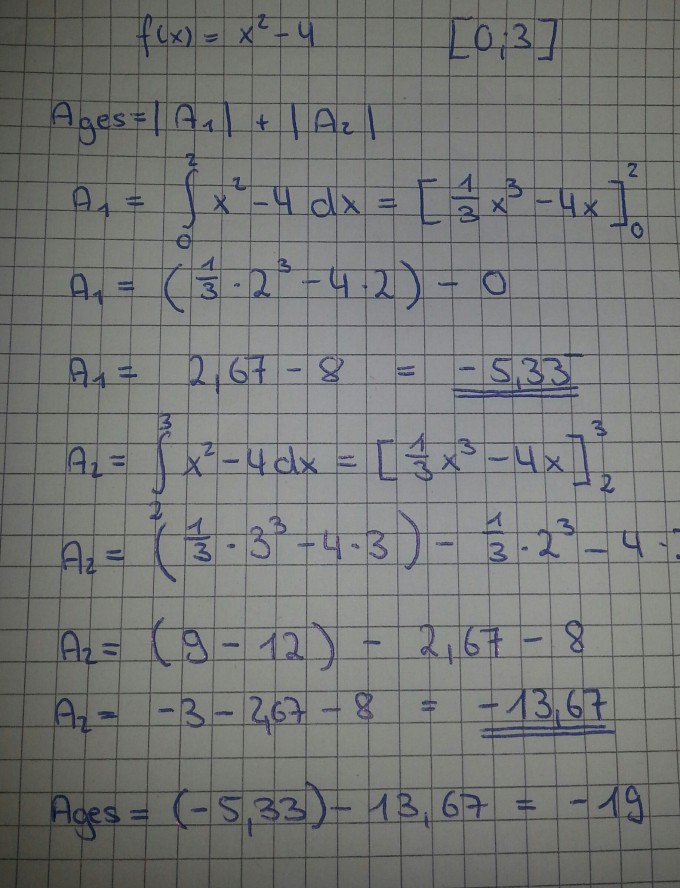 f(x) = x² - 4 [0;3]
Ages = |A₁| + |A₂|
A₁ = ∫₀² x² - 4 dx = [1/3 x³ - 4x]₀²
A₁ = (1/3 · 2³ - 4 · 2) - 0
A₁ = 2,67 - 8 = -5,33
A₂ = ∫₂³ x² - 4 dx = [1/3 x³ - 4x]₂³
A₂ = (1/3 · 3³ - 4 · 3) - 1/3 · 2³ - 4 ·
A₂ = (9 - 12) - 2,67 - 8
A₂ = -3 - 2,67 - 8 = -13,67
Ages = (-5,33) - 13,67 = -19